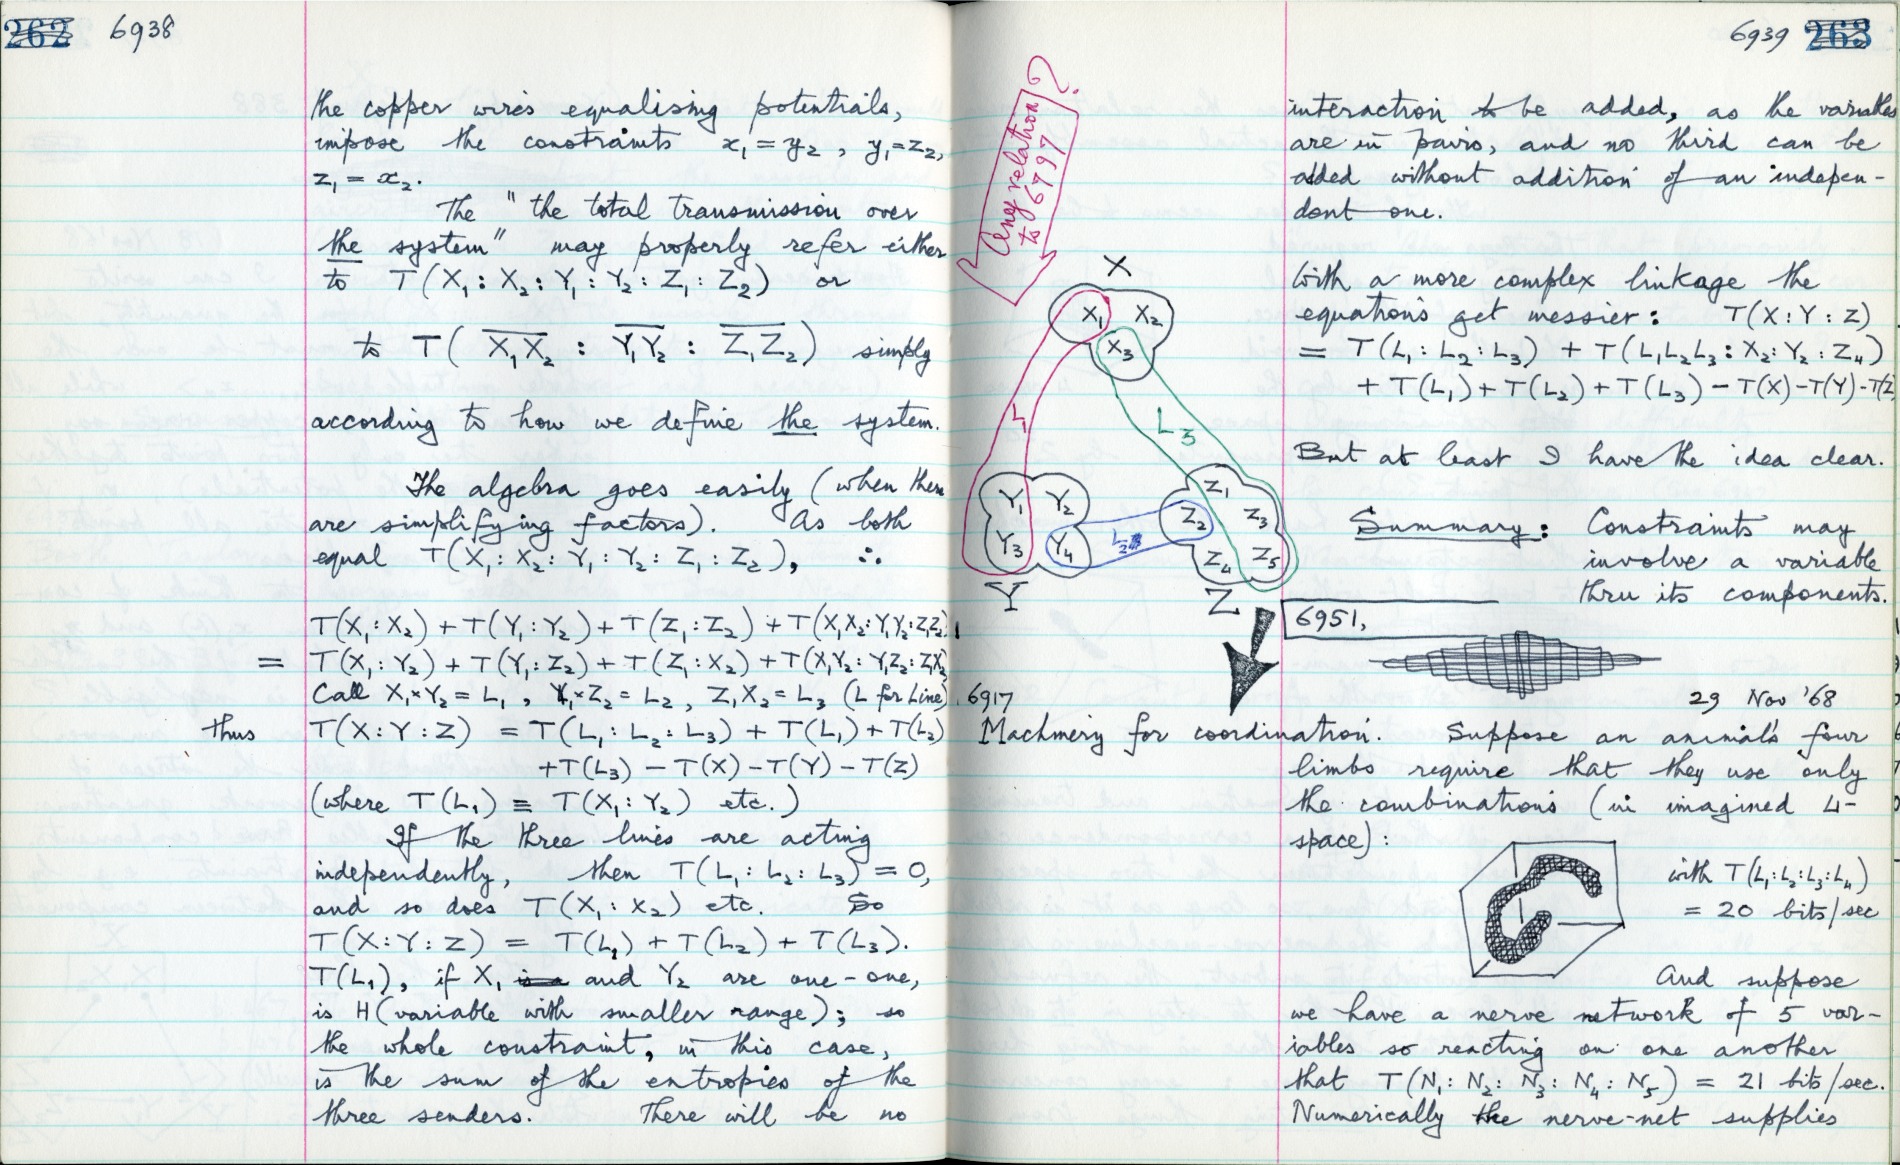 262 6938
the copper wires equalising potentials,
impose the constraints x₁ = y₂ , y₁ = z₂,
z₁ = x₂.
The " the total transmission over
the system" may properly refer either
to T(X₁ : X₂ : Y₁ : Y₂ : Z₁ : Z₂) or
to T( X₁X₂ : Y₁Y₂ : Z₁Z₂) simply
according to how we define the system.
The algebra goes easily (when there
are simplifying factors). As both
equal T(X₁ : X₂ : Y₁ : Y₂ : Z₁ : Z₂), ∴
T(X₁ : X₂) + T(Y₁ : Y₂) + T(Z₁ : Z₂) + T(X₁X₂ : Y₁Y₂ : Z₁Z₂)
= T(X₁ : Y₂) + T(Y₁ : Z₂) + T(Z₁ : X₂) + T(X₁Y₂ : Y₁Z₂ : Z₁X₂)
Call X₁×Y₂ = L₁ , Y₁×Z₂ = L₂ , Z₁X₂ = L₃ (L for Line)
thus T(X : Y : Z) = T(L₁ : L₂ : L₃) + T(L₁) + T(L₂)
+ T(L₃) − T(X) − T(Y) − T(Z)
(where T(L₁) ≡ T(X₁ : Y₂) etc.)
If the three lines are acting
independently, then T(L₁ : L₂ : L₃) = 0,
and so does T(X₁ : X₂) etc. So
T(X : Y : Z) = T(L₁) + T(L₂) + T(L₃).
T(L₁), if X₁ and Y₂ are one-one,
is H(variable with smaller range); so
the whole constraint, in this case,
is the sum of the entropies of the
three senders. There will be no
6939 263
Any relation
to 6797
?
X
X₁ X₂
X₃
L
L₃
Y₁ Y₂
Y₃ Y₄
L₂
Z₁
Z₂ Z₃
Z₄ Z₅
Y Z
interaction to be added, as the variables
are in pairs, and no third can be
added without addition of an indepen-
dont one.
With a more complex linkage the
equations get messier : T(X : Y : Z)
= T(L₁ : L₂ : L₃) + T(L₁L₂L₃ : X₂ : Y₂ : Z₄)
+ T(L₁) + T(L₂) + T(L₃) − T(X) − T(Y) − T(Z
But at least I have the idea clear.
Summary : Constraints may
involve a variable
thru its components.
6951,
29 Nov '68
6917
Machinery for coordination. Suppose an animal's four
limbs require that they use only
the combinations (in imagined 4-
space) :
with T(L₁:L₂:L₃:L₄)
= 20 bits/sec
And suppose
we have a nerve network of 5 var-
iables so reacting on one another
that T(N₁ : N₂ : N₃ : N₄ : N₅) = 21 bits/sec.
Numerically the nerve-net supplies